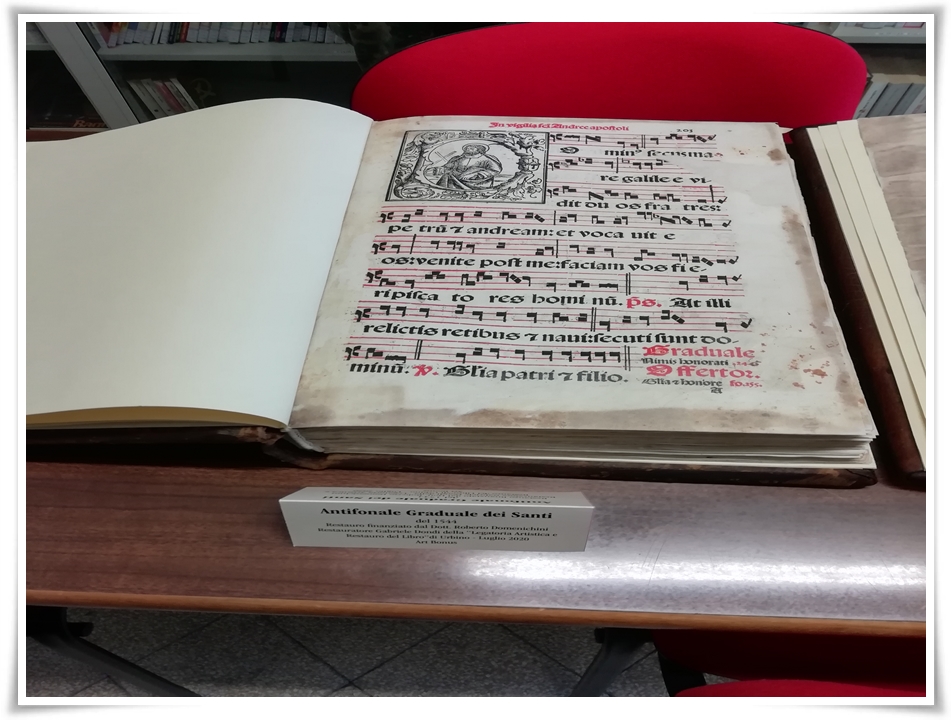 In vigilia sci Andree apostoli 201
O minꝰ secusma
re galilee vi-
dit dū os fra tres:
pe trū ⁊ andream: et voca uit e
os: venite post me: faciam vos fi e-
ri pisca to res homi nū. p̄s. At illi
relictis retibus ⁊ naui: secuti sunt do-
minū. ℣. Glia patri ⁊ filio.
Graduale
Nimis honorati
Offertor.
Glia ⁊ honore
Antifonale Graduale dei Santi
del 1544
Restauro finanziato dal Dott. Roberto Domenichini
Restauratore Gabriele Dondi della "Legatoria Artistica e
Restauro del Libro" di Urbino - Luglio 2020
Art Bonus